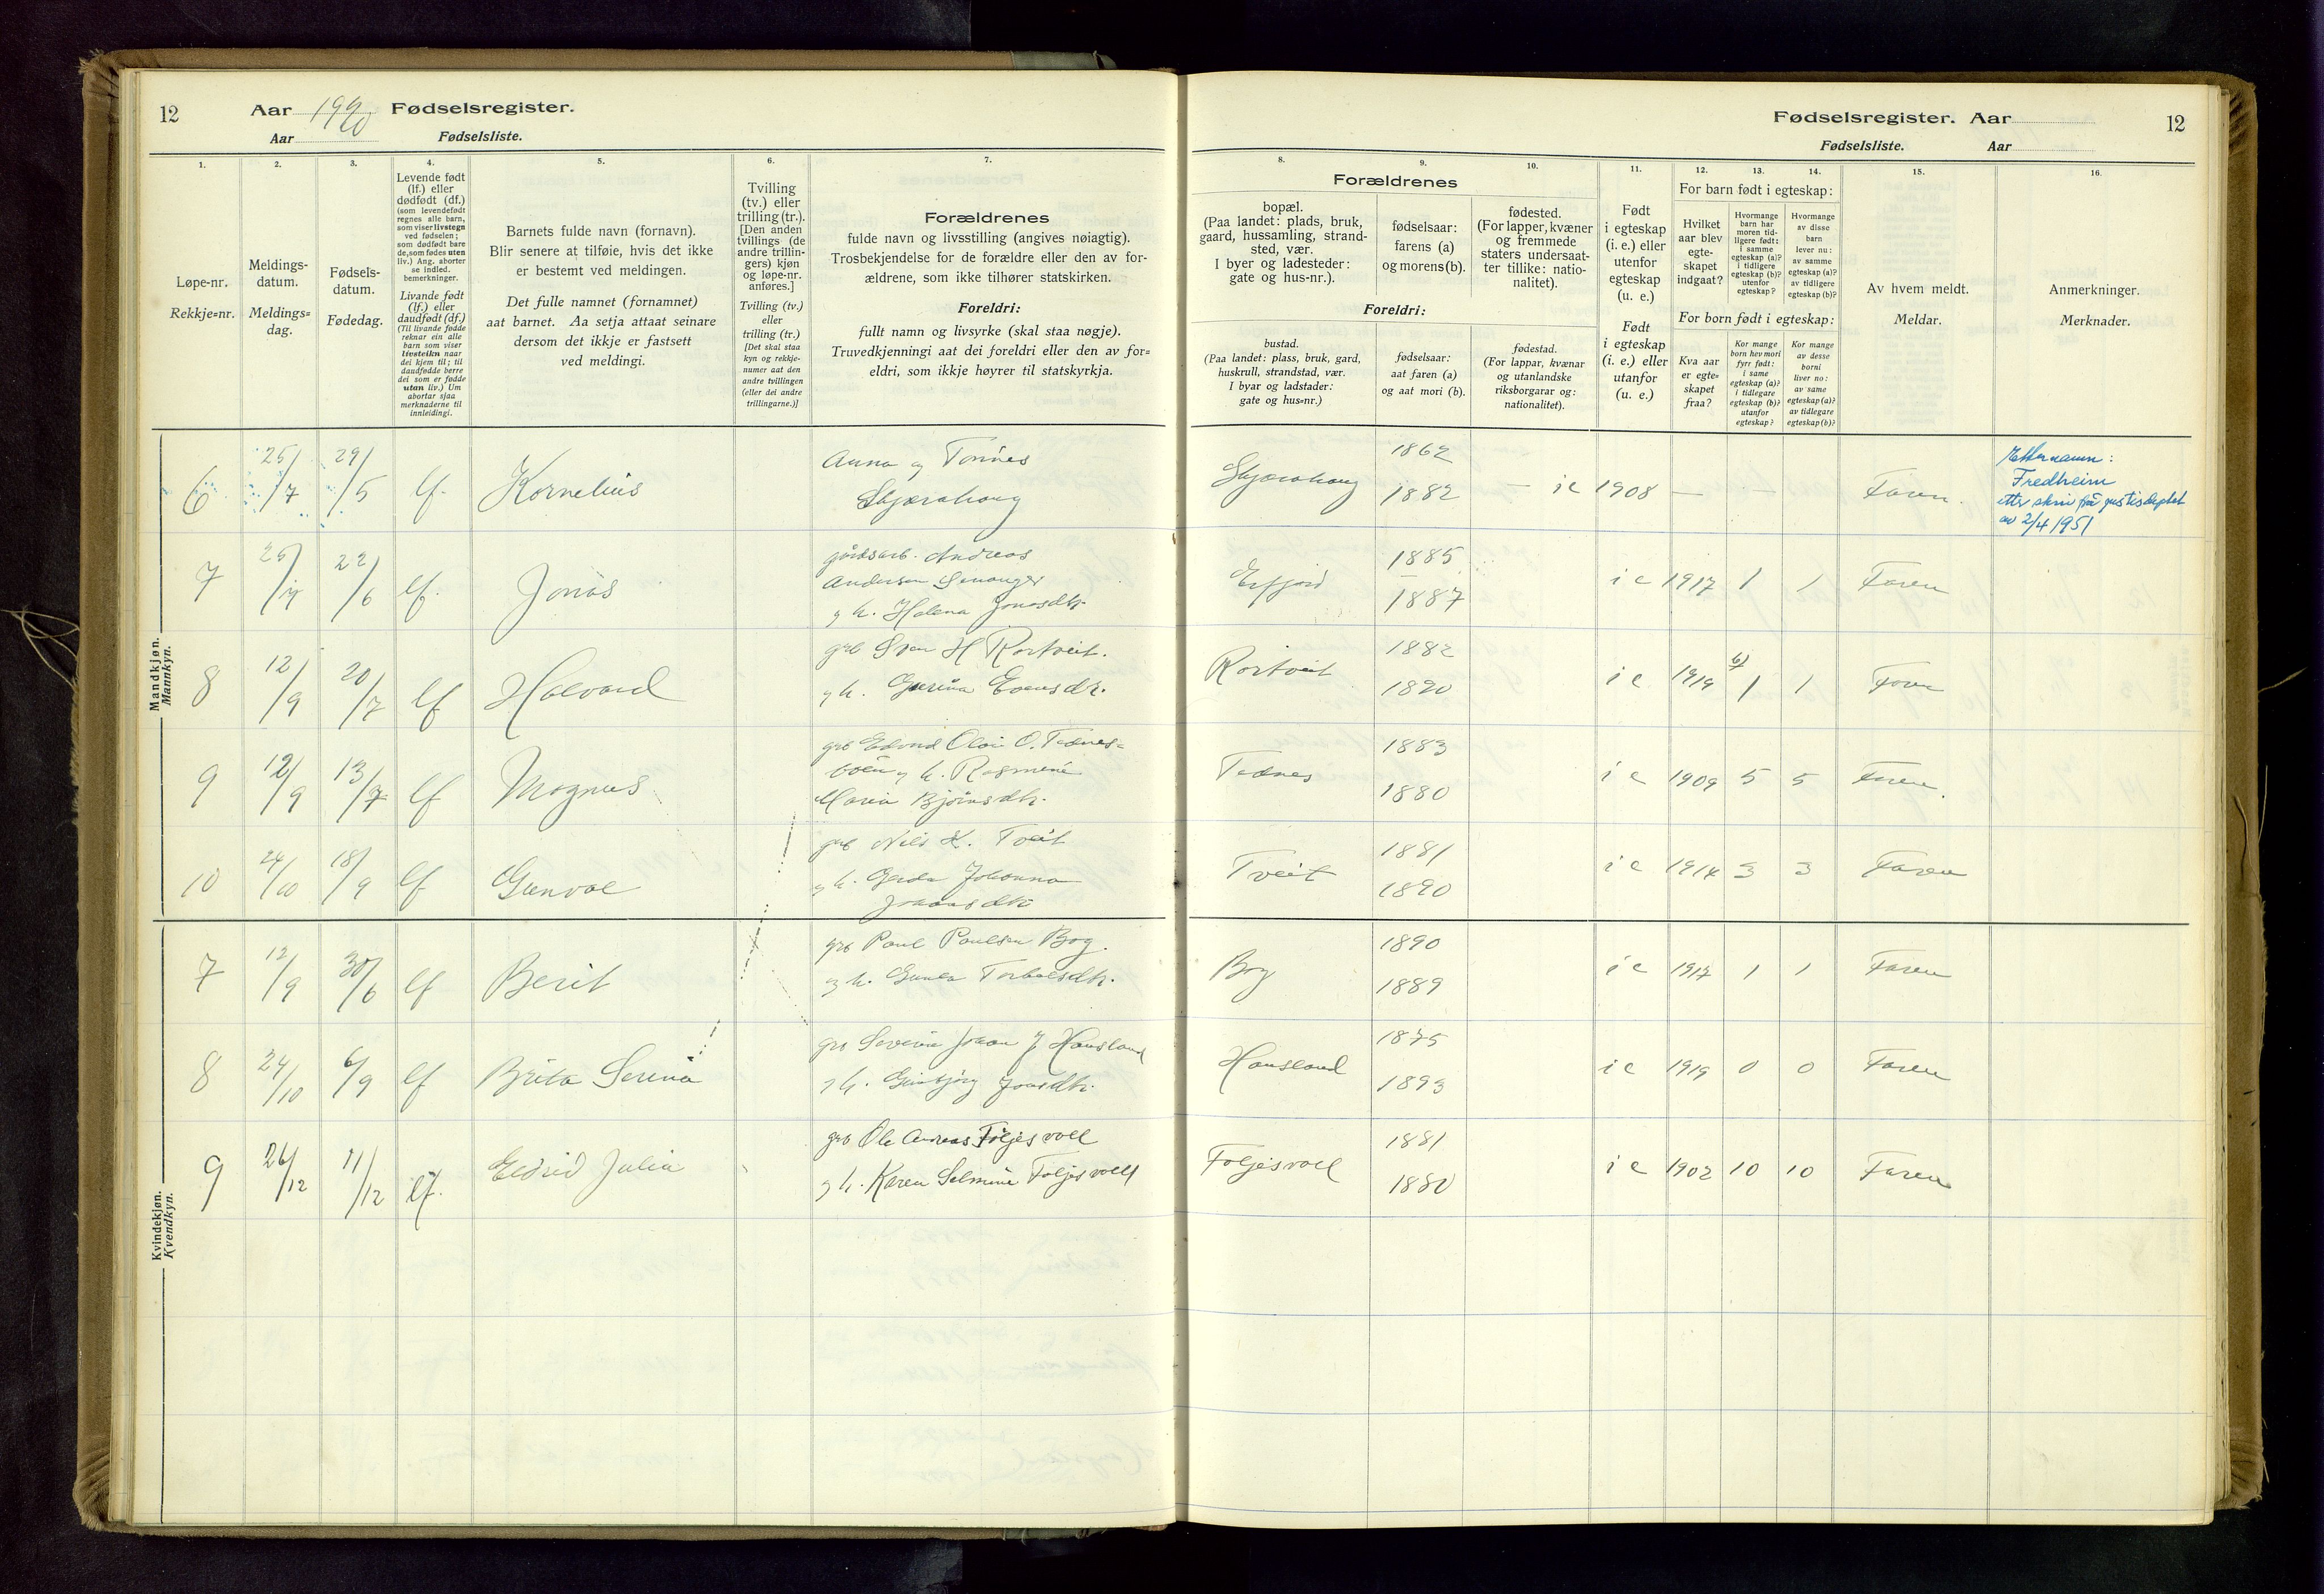 12
Aar 1920 Fødselsregister.
Aar Fødselsliste.
1.
Løpe-nr.
Rekkje=nr.
2.
Meldings-
datum.
Meldings=
dag.
3.
Fødsels-
datum.
Fødedag.
4.
Levende født
(lf.) eller
dødfødt (df.)
(som levendefødt
regnes alle barn,
som viser livstegn
ved fødselen;
som dødfødt bare
de, som fødes uten
liv.) Ang. aborter
se indled.
bemerkninger.
Livande født
(lf.) eller
daudfødt (df.)
(Til livande fødde
reknar ein alle
barn som viser
livsteikn naar
dei kjem til; til
daudfødde berre
dei som er fødde
utan liv.) Um
abortar sjaa
merknaderne til
innleidingi.
5.
Barnets fulde navn (fornavn).
Blir senere at tilføie, hvis det ikke
er bestemt ved meldingen.
Det fulle namnet (fornamnet)
aat barnet. Aa setja attaat seinare
dersom det ikkje er fastsett
ved meldingi.
6.
Tvilling
(tv.) eller
trilling (tr.).
[Den anden
tvillings (de
andre trillin-
gers) kjøn
og løpe-nr.
anføres.]
Tvilling (tv.)
eller
trilling (tr.)
[Det skal staa
kyn og rekkje-
numer aat den
andre tvillingen
(eller dei andre
trillingarne.)]
7.
Forældrenes
fulde navn og livsstilling (angives nøiagtig).
Trosbekjendelse for de forældre eller den av for-
ældrene, som ikke tilhører statskirken.
Foreldri:
fullt namn og livsyrke (skal staa nøgje).
Truvedkjenningi aat dei foreldri eller den av for=
eldri, som ikkje høyrer til statskyrkja.
Mandkjøn.
Mannkyn.
6 25/7 29/5 lf. Kornelius Anna og Tønnes
Skjærahaug
7 25/7 22/6 lf. Jonas gårdsarb. Andreas
Andersen
g h. Helena Jonasdtr
8 12/9 20/7 lf Halvard grb Sven H Rortveit.
g h. Evensdr.
9 12/9 13/7 lf Magnus grb Edvind Olai O. Tednes=
g h. Rasmine
Maria Bjørnsdtr.
10 24/10 18/9 lf Gunval grb Nils K. Tveit
g h. Gerda Johanna
Kvindekjøn.
Kvendkyn.
7 12/9 30/6 lf Berit grb Paul Paulsen Bog.
g h. Torbalsdtr.
8 24/10 6/9 lf Brita Serina grb Severin Johan J Hausland
g h. Jonsdtr.
9 26/12 11/12 lf. Eldrid Julia grb Ole Andreas Foljesvoll
g h. Karen Selmine Foljesvoll
Fødselsregister. Aar
12
Fødselsliste. Aar
Forældrenes
8.
bopæl.
(Paa landet: plads, bruk,
gaard, hussamling, strand-
sted, vær.
I byer og ladesteder:
gate og hus-nr.).
9.
fødselsaar:
farens (a)
og morens (b).
10.
fødested.
(For lapper, kvæner
og fremmede
staters undersaat-
ter tillike: natio-
nalitet).
Foreldri:
bustad.
(Paa landet: plass, bruk, gard,
huskrull, strandstad, vær.
I byar og ladstader:
gate og hus-nr.)
fødselsaar:
aat faren (a)
og aat mori (b).
fødestad.
(For lappar, kvænar
og utanlandske
riksborgarar og:
nationalitet).
11.
Født
i egteskap
(i. e.) eller
utenfor
egteskap
(u. e.)
Født
i egteskap
(i. e.) eller
utanfor
(u. e.)
For barn født i egteskap:
12.
Hvilket
aar blev
egte-
skapet
indgaat?
13.
Hvormange
barn har
moren tid-
ligere født:
i samme
egteskap (a)?
i tidligere
egteskap (b)?
utenfor
egteskap?
14.
Hvormange
av disse
barn
lever nu:
av samme
egteskap (a)?
av tidligere
egteskap (b)?
For born født i egteskap:
Kva aar
er egte=
skapet
fraa?
Kor mange
born hev mori
fyrr født:
i same
egteskap (a)?
i tidlegare
egteskap (b)?
utanfor
egteskap?
Kor mange
av desse
borni
liver no:
av same
egteskap (a)?
av tidlegare
egteskap (b)?
15.
Av hvem meldt.
Meldar.
16.
Anmerkninger.
Merknader.
Skjærahaug 1862
1882 — i e 1908 — — Faren. Etternamn:
Fredheim
etter skriv frå justisdeptet
av 2/4 1951
Erfjord 1885
1887 i e 1917 1 1 Faren
Rortveit 1882
1890 i e 1919 b) 1 1 Faren
Tednes 1883
1880 i e 1909 5 5 Faren.
Tveit 1881
1890 i e 1914 3 3 Faren
Bog 1890
1889 i e 1917 1 1 Faren
Hausland 1875
1893 i e 1919 0 0 Faren
Foljesvoll 1881
1880 i e 1902 10 10 Faren